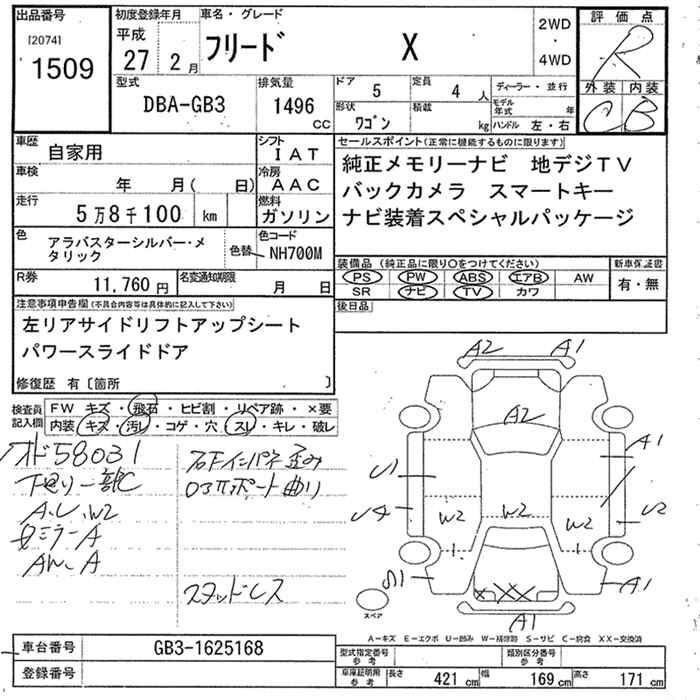 出品番号
[2074]
1509
初度登録年月
平成
27 2月
車名・グレード
フリード X
2WD
・
4WD
評価点
R
外装 内装
C B
型式
DBA-GB3
排気量
1496
cc
ドア 5
定員 4人
形状 ワゴン
積載 kg
ディーラー・並行
モデル年式 年
ハンドル 左・右
車歴
自家用
シフト
IAT
車検
年 月( 日)
冷房
AAC
走行
5万8千100 km
燃料
ガソリン
色
アラバスターシルバー・メ
タリック
色替
色コード
NH700M
R券
11,760円
名変通知期限
月 日
セールスポイント(正常に機能するものに限ります)
純正メモリーナビ 地デジTV
バックカメラ スマートキー
ナビ装着スペシャルパッケージ
装備品 (純正品に限り○をつけてください)
PS PW ABS エアB AW
SR ナビ TV カワ
新車保証書
有・無
後日品
注意事項申告欄(不具合内容等は具体的に記入して下さい)
左リアサイドリフトアップシート
パワースライドドア
修復歴 有〔箇所 〕
検査員
記入欄
FW キズ・飛石・ヒビ割・リペア跡・×要
内装 キズ・汚レ・コゲ・穴・スレ・キレ・破レ
オド58031
下廻り一部C
A.U.W2
ミラーA
A
右Fインパネ歪み
ロアサポート曲り
スタッドレス
A2 A1
A2
A1
U1
W2 W2 W2
A1
XXX
A1
スペア
A－キズ E－エクボ U－凹み W－補修跡 S－サビ C－腐食 XX－交換済
車台番号
GB3-1625168
登録番号
型式指定番号
参考
類別区分番号
参考
車庫証明用
参考
長さ 421 cm 幅 169 cm 高さ 171 cm